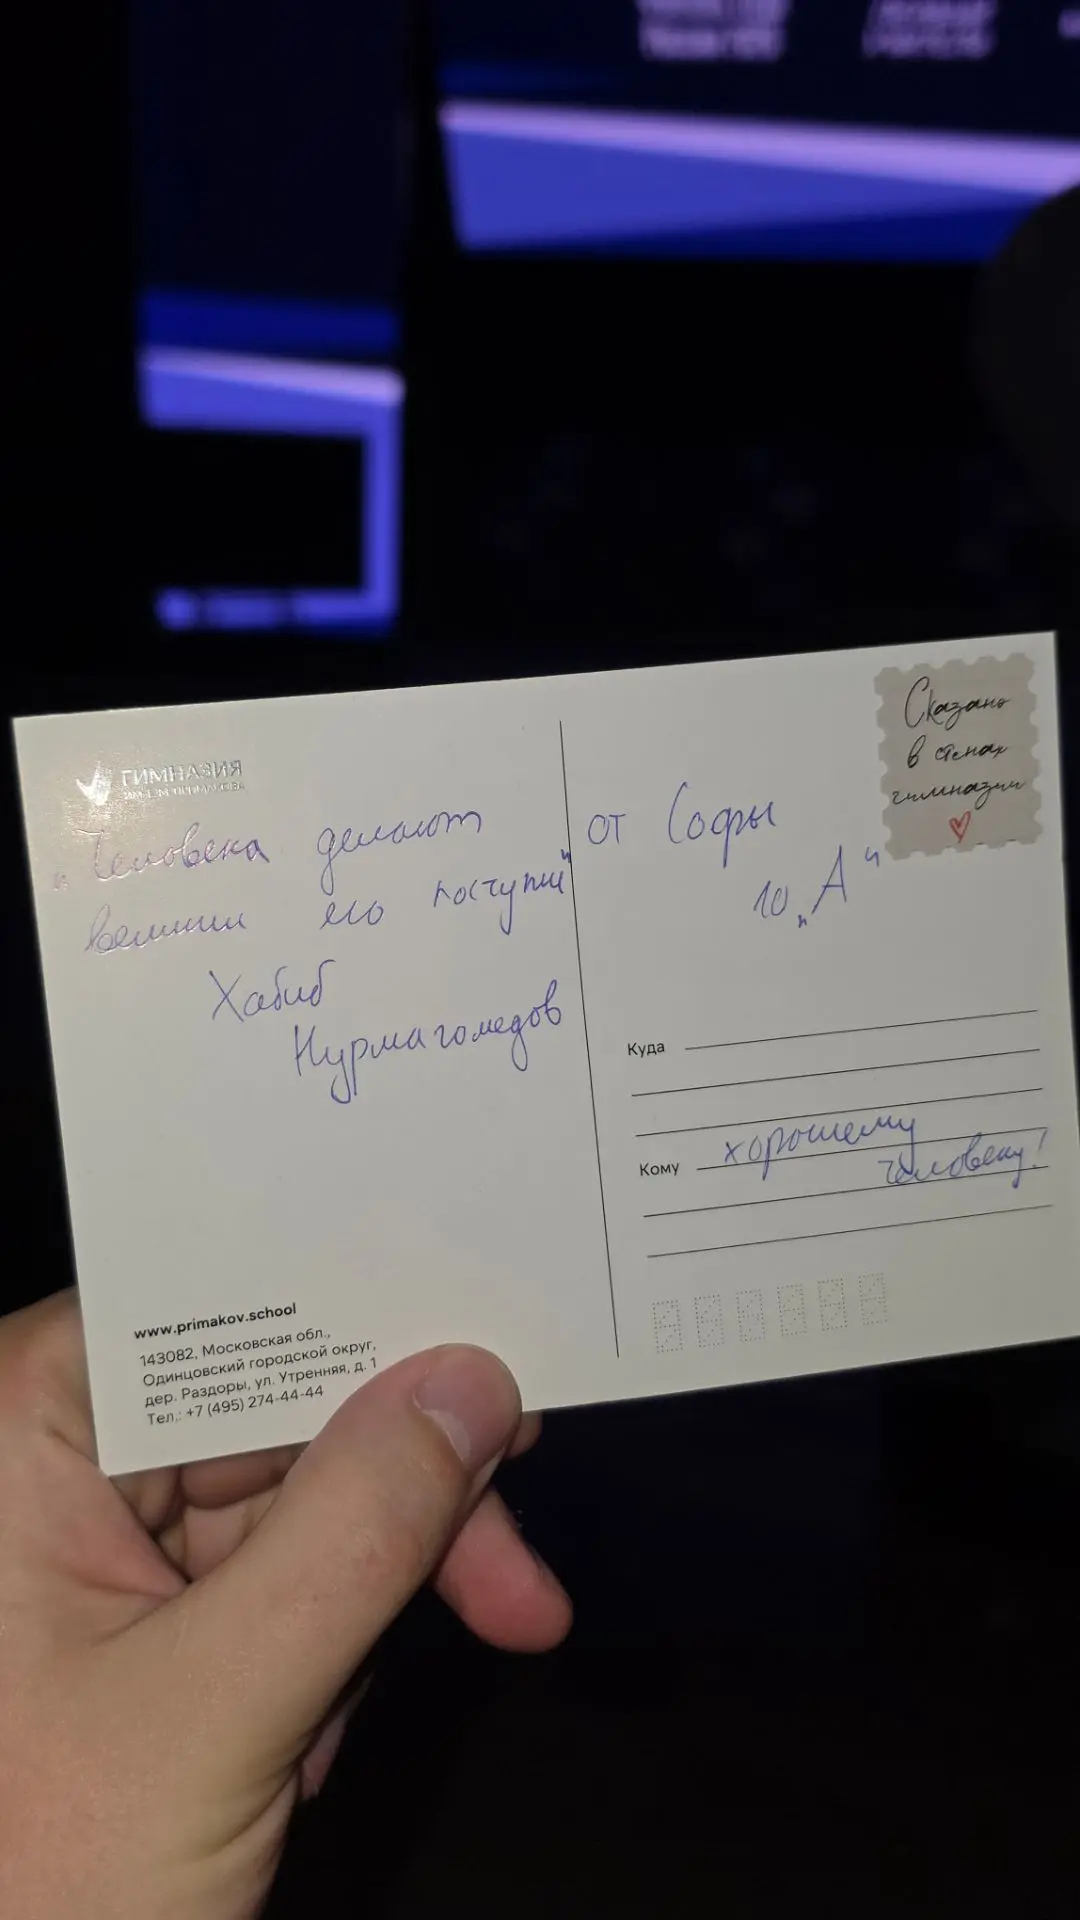 ГИМНАЗИЯ
„Человека делают
великим его поступки"
Хабиб
Нурмагомедов
www.primakov.school
143082, Московская обл.,
Одинцовский городской округ,
дер. Раздоры, ул. Утренняя, д. 1
Тел.: +7 (495) 274-44-44
Сказано
в стенах
гимназии
от Софы
10 „А"
Куда
Кому хорошему
человеку!